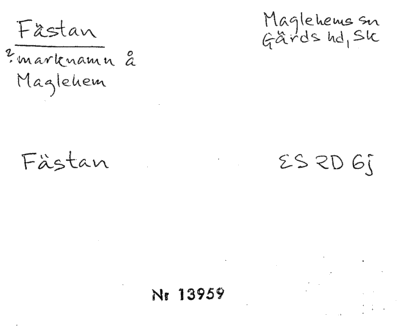 Fästan
Maglehems sn
Gärds hd, Sk
? marknamn å
Maglehem
Fästan
ES 2D 6j
Nr 13959